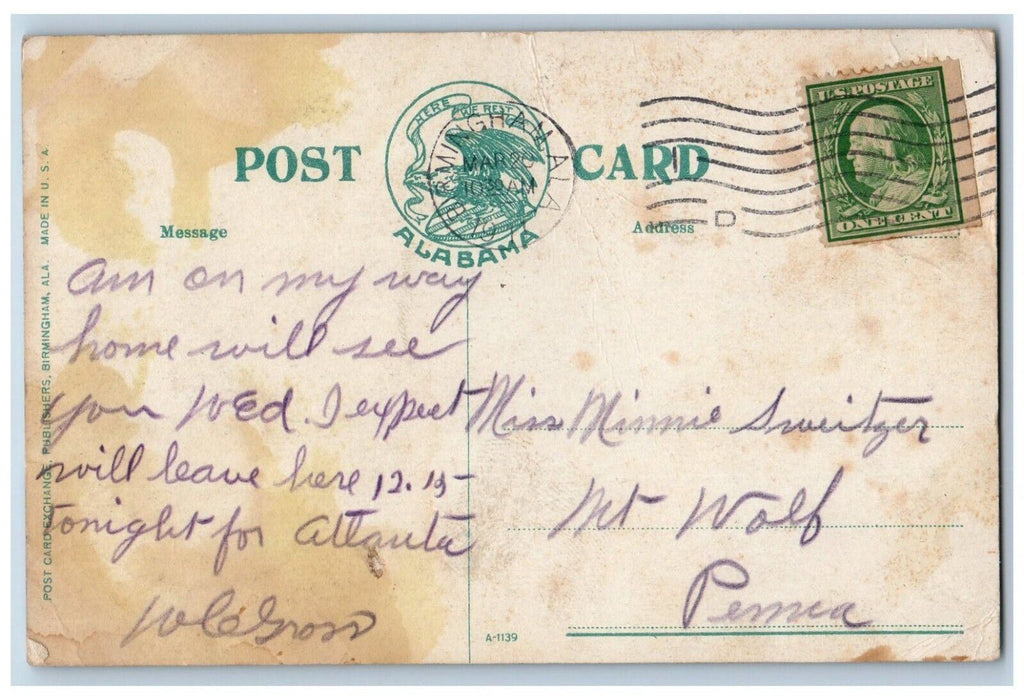 POST CARD
HERE WE REST
ALABAMA
BIRMINGHAM, ALA
MAR 20
10 30 AM
D
U.S. POSTAGE
ONE CENT
Message
Address
Am on my way
home will see
you WEd. I expect
will leave here 12.15
tonight for Atlanta
W C Gross
Miss Minnie Sweitzer
Mt Wolf
Penna
A-1139
POST CARD EXCHANGE, PUBLISHERS, BIRMINGHAM, ALA. MADE IN U. S. A.